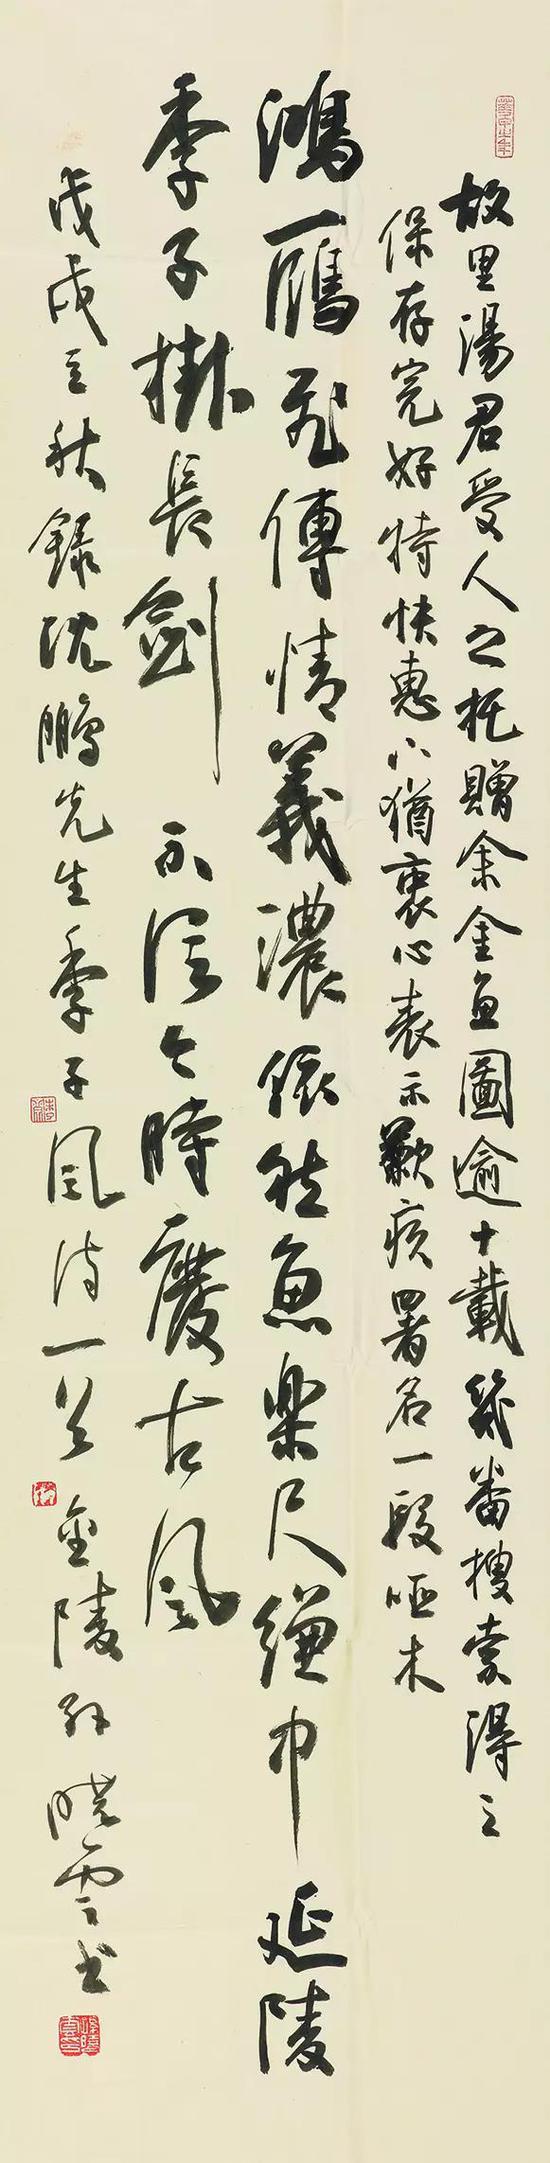 故里湯君受人之托贈余金魚圖逾十載幾番搜索得之
保存完好特快惠猶衷心表示歉疚署名一段啞木
鴻鴈飛傳情義濃依然魚樂尺縑中延陵
季子掛長劍不信今時廢古風
戊戌立秋錄沈鵬先生季子風詩一首金陵孫曉雲書